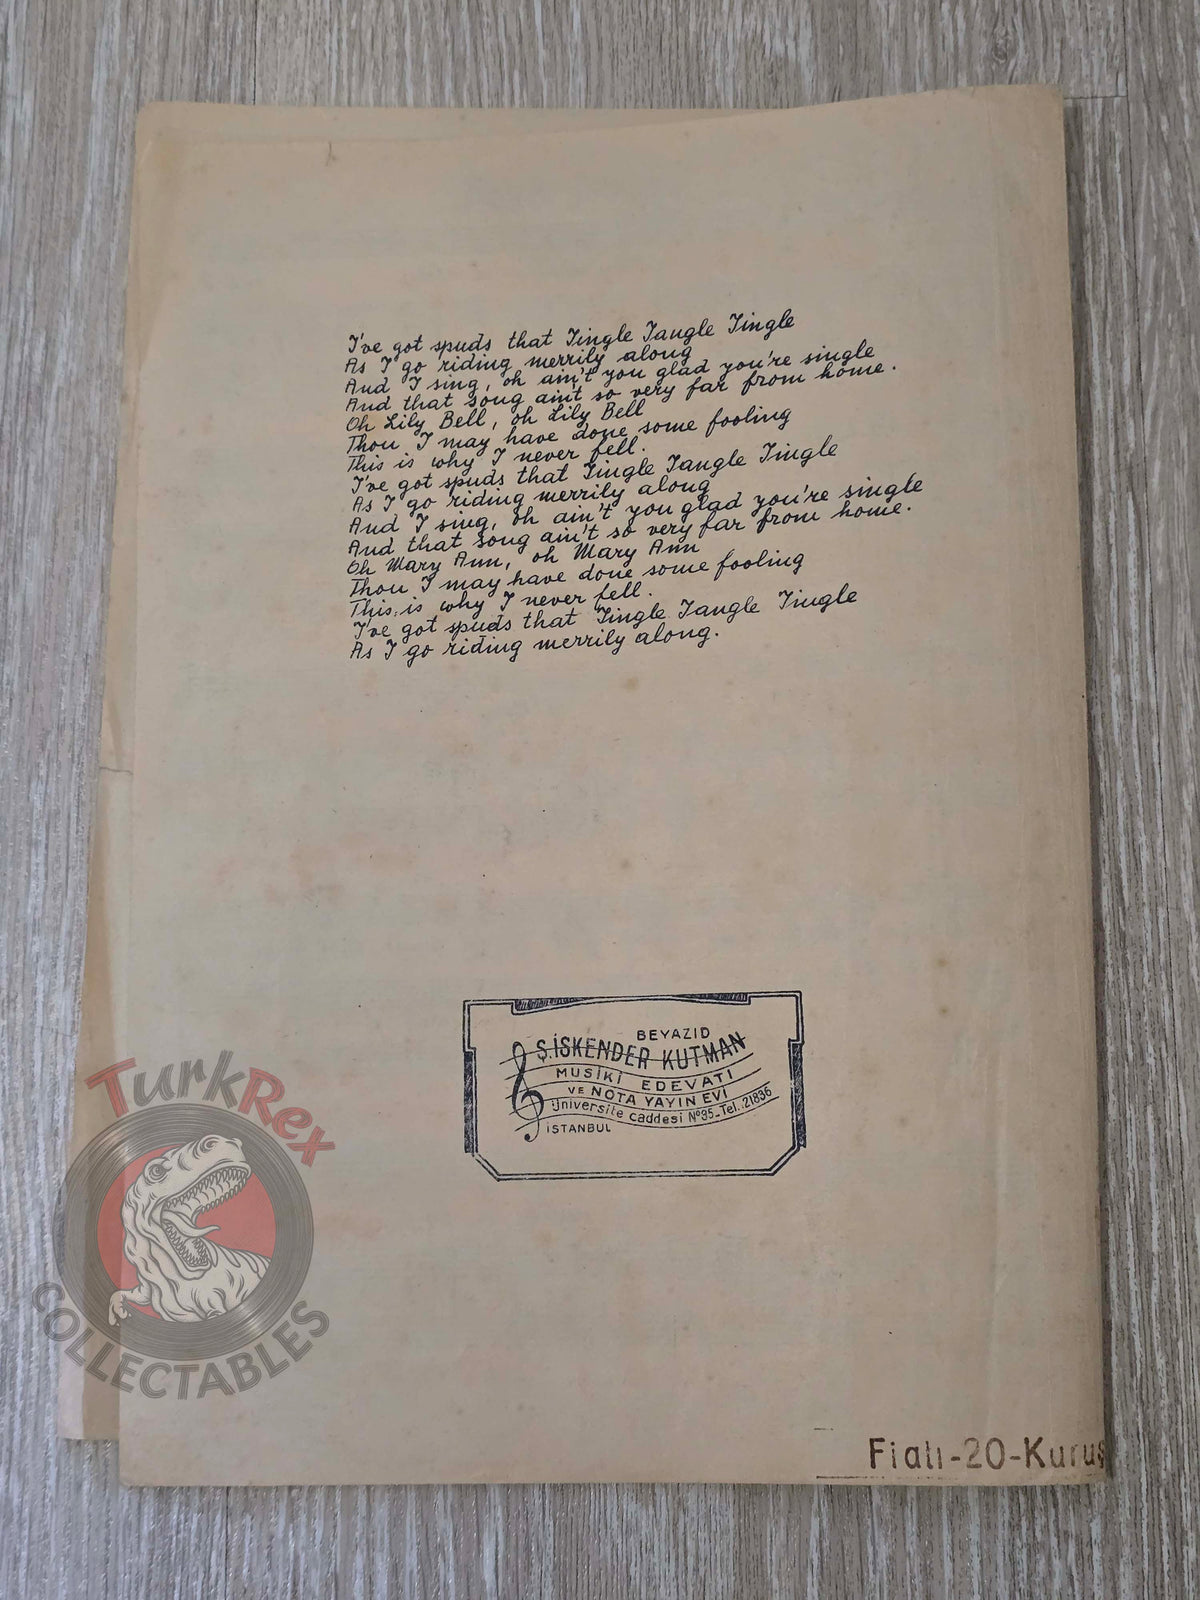 I've got spuds that Jingle Jangle Jingle
As I go riding merrily along
And I sing, oh ain't you glad you're single
And that song ain't so very far from home.
Oh Lily Bell, oh Lily Bell
Thou I may have done some fooling
This is why I never fell.
I've got spuds that Jingle Jangle Jingle
As I go riding merrily along
And I sing, oh ain't you glad you're single
And that song ain't so very far from home.
Oh Mary Ann, oh Mary Ann
Thou I may have done some fooling
This is why I never fell.
I've got spuds that Jingle Jangle Jingle
As I go riding merrily along.
BEYAZID
Ş.İSKENDER KUTMAN
MUSİKİ EDEVATI
VE NOTA YAYIN EVİ
Üniversite caddesi Nº95-Tel.:21836
İSTANBUL
TurkRex
COLLECTABLES
Fiatı-20-Kuruş